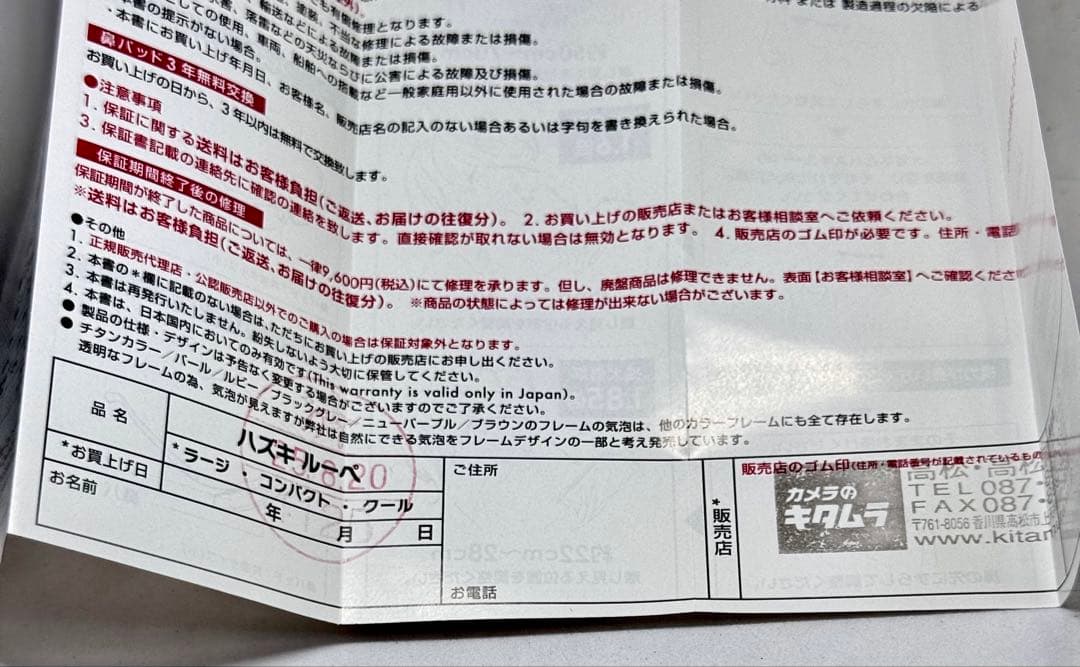 または 製造過程の欠陥による
も有償修理となります。
塗装、不当な修理による故障または損傷。
輸送などによる故障または損傷。
書、落雷などの天災ならびに公害による故障及び損傷。
としての使用、車両、船舶への搭載など一般家庭用以外に使用された場合の故障または損傷。
、本書の提示がない場合。
、本書にお買い上げ年月日、お客様名、販売店名の記入のない場合あるいは字句を書き換えられた場合。
鼻パッド3年無料交換
お買い上げの日から、3年以内は無料で交換致します。
●注意事項
1. 保証に関する送料はお客様負担(ご返送、お届けの往復分)。 2. お買い上げの販売店またはお客様相談室へご依頼ください。
3. 保証書記載の連絡先に確認の連絡を致します。直接確認が取れない場合は無効となります。 4. 販売店のゴム印が必要です。住所・電話
保証期間終了後の修理
保証期間が終了した商品については、一律9,600円(税込)にて修理を承ります。但し、廃盤商品は修理できません。表面【お客様相談室】へご確認くださ
※送料はお客様負担(ご返送、お届けの往復分)。 ※商品の状態によっては修理が出来ない場合がございます。
●その他
1. 正規販売代理店・公認販売店以外でのご購入の場合は保証対象外となります。
2. 本書の*欄に記載のない場合は、ただちにお買い上げの販売店にお申し出ください。
3. 本書は再発行いたしません。紛失しないよう大切に保管してください。
4. 本書は、日本国内においてのみ有効です(This warranty is valid only in Japan)。
● 製品の仕様・デザインは予告なく変更する場合がございますのでご了承ください。
● チタンカラー/パール/ルビー/ブラックグレー/ニューパープル/ブラウンのフレームの気泡は、他のカラーフレームにも全て存在します。
透明なフレームの為、気泡が見えますが弊社は自然にできる気泡をフレームデザインの一部と考え発売しています。
品名
ハズキ ルーペ
*ラージ ・ コンパクト ・ クール
*お買上げ日
年 月 日
6.20
お名前
ご住所
お電話
*販売店
販売店のゴム印(住所・電話番号が記載されているもの
カメラの
キタムラ
高松・高松
TEL 087-
FAX 087-
〒761-8056 香川県高松市上
www.kitam